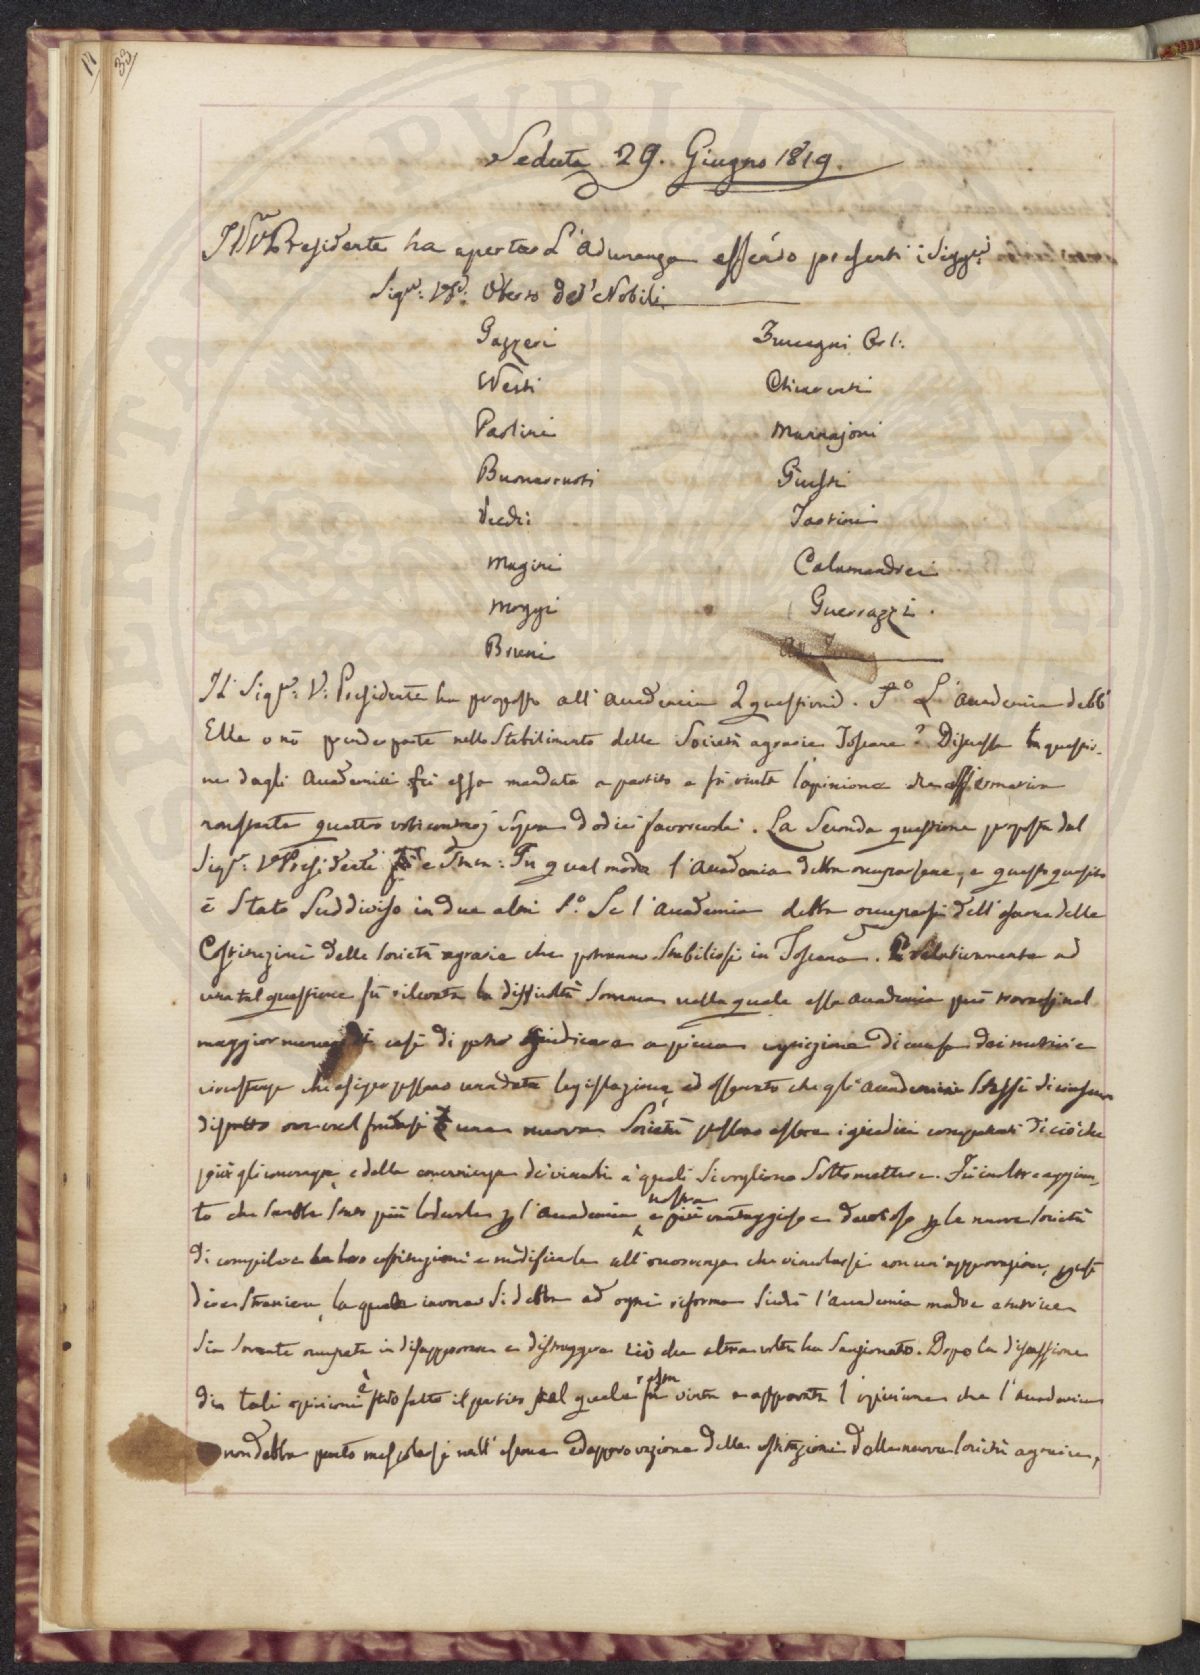 33
Seduta 29. Giugno 1819.
Il V. Presidente ha aperta L'adunanza essendo presenti i Sigg.ri
Sig.re V.P. Uberto de' Nobili
Gazzeri
Nesti
Paolini
Buonarroti
Magini
Moggi
Bruni
Chiarenti
Mannajoni
Giusti
Tartini
Calamandrei
Guerrazzi.
Il Sig.r V. Presidente ha proposto all'Accademia 2 questioni. P.o L'accademia debb'
Ella o nò prender parte nello Stabilimento delle Società agrarie Toscane? Discussa la questio-
ne dagli Accademici fù essa mandata a partito e fù vinta l'opinione affermativa
quattro voti contrarj sopra dodici favorevoli. La Seconda questione proposta dal
Sig.r V. Presidente è: In qual modo l'Accademia debba occuparsene, e questo quesito
è Stato Suddiviso in due altri P.o Se l'Accademia debba occuparsi dell'esame delle
Costituzioni delle Società agrarie che potranno Stabilirsi in Toscana. Relativamente ad
una tal questione fù rilevata la difficoltà somma nella quale essa Accademia può trovarsi nel
maggior numero casi di poter giudicare a piena cognizione di causa dei motivi e
circostanze che esiger possano una data legislazione, ed osservato che gli Accademici Stessi di ciascun
nuova Società possano essere i giudici competenti di ciò che
più gli convenga e della convenienza de' vincoli a' quali Si vogliono Sottomettere. Fù inoltre aggiun-
to che Sarebbe Stato più lodevole p l'Accademia nostra e più vantaggioso e decoroso p le nuove Società
di compilare le loro costituzioni e modificarle all'occorrenza che vincolarsi con un'approvazione,
direi Straniera, la quale Si debba ad ogni riforma l'Accademia madre
Sia Sovente occupata in disapprovare e distruggere ciò che altra volta ha Sanzionato. Dopo la discussione
di tali opinioni è stato fatto il partito pel quale fù vinta e approvata l'opinione che l'Accademia
non debba punto mescolarsi nell'esame ed approvazione delle costituzioni delle nuove Società agrarie,